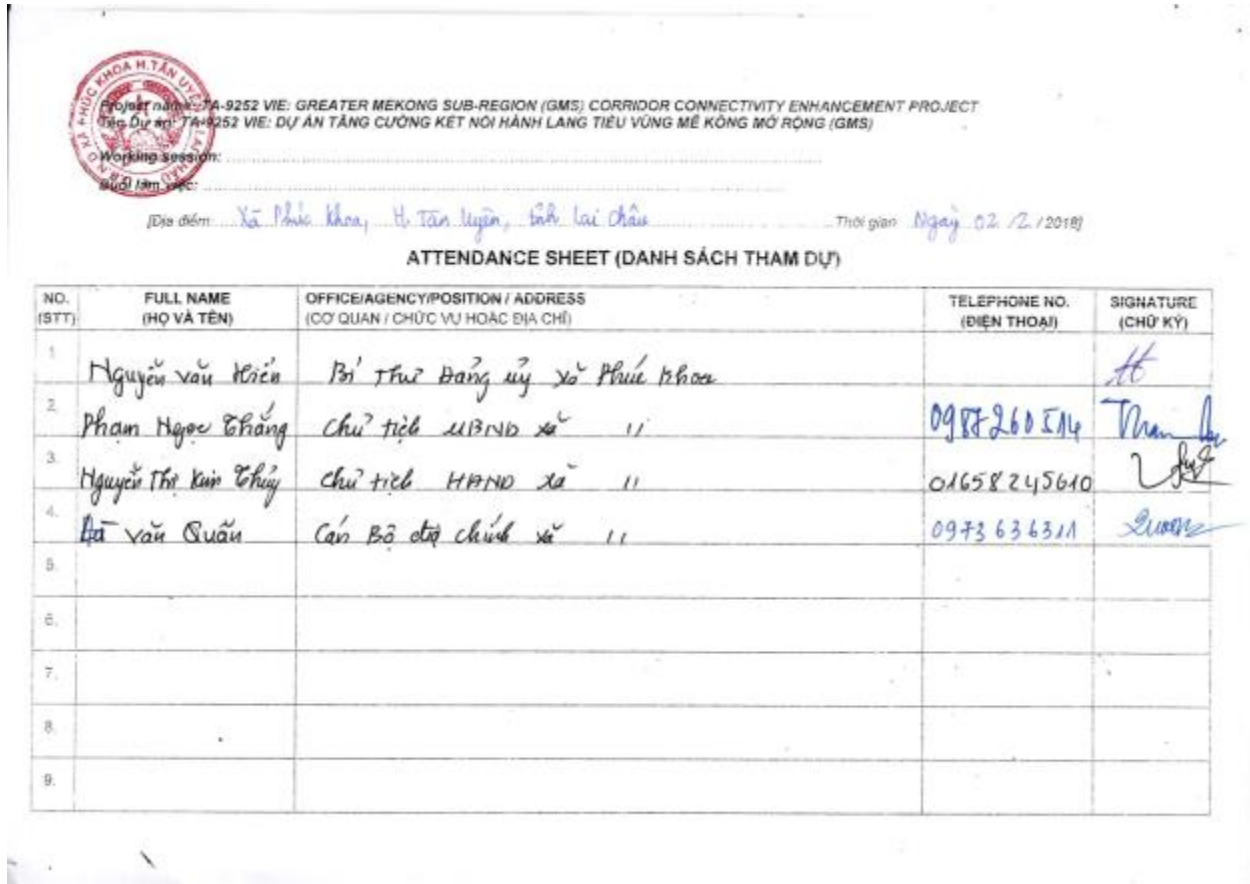 KHOA H.TÂN UYÊN
Project name: TA-9252 VIE: GREATER MEKONG SUB-REGION (GMS) CORRIDOR CONNECTIVITY ENHANCEMENT PROJECT
Tên Dự án: TA-9252 VIE: DỰ ÁN TĂNG CƯỜNG KẾT NỐI HÀNH LANG TIỂU VÙNG MÊ KÔNG MỞ RỘNG (GMS)
Working session:
Buổi làm việc:
[Địa điểm: Xã Phúc Khoa, H. Tân Uyên, tỉnh Lai Châu Thời gian: Ngày 02 /2 /2018]
ATTENDANCE SHEET (DANH SÁCH THAM DỰ)
NO. FULL NAME OFFICE/AGENCY/POSITION / ADDRESS TELEPHONE NO. SIGNATURE
(STT) (HỌ VÀ TÊN) (CƠ QUAN / CHỨC VỤ HOẶC ĐỊA CHỈ) (ĐIỆN THOẠI) (CHỮ KÝ)
1. Nguyễn Văn Hiến Bí Thư Đảng ủy xã Phúc Khoa
2. Phạm Ngọc Thắng Chủ tịch UBND xã 11 0987260514
3. Nguyễn Thị Kim Thúy Chủ tịch HĐND xã 11 01658245610
4. Văn Quấn Cán Bộ địa chính xã 11 0973636311
5.
6.
7.
8.
9.